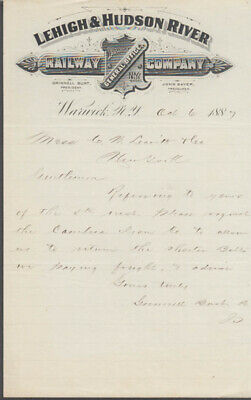 LEHIGH & HUDSON RIVER
RAILWAY COMPANY
GENERAL OFFICE
GRINNELL BURT, PRESIDENT.
JOHN SAYER, TREASURER.
Warwick, N.Y. Oct 6 1887
Mess
New York
Gentlemen
Referring to yours
of the 5th inst. Please request
the Cambria Iron Co to allow
us to return the shorter Bolts
we paying freight, & advise
Yours truly
Grinnell Burt